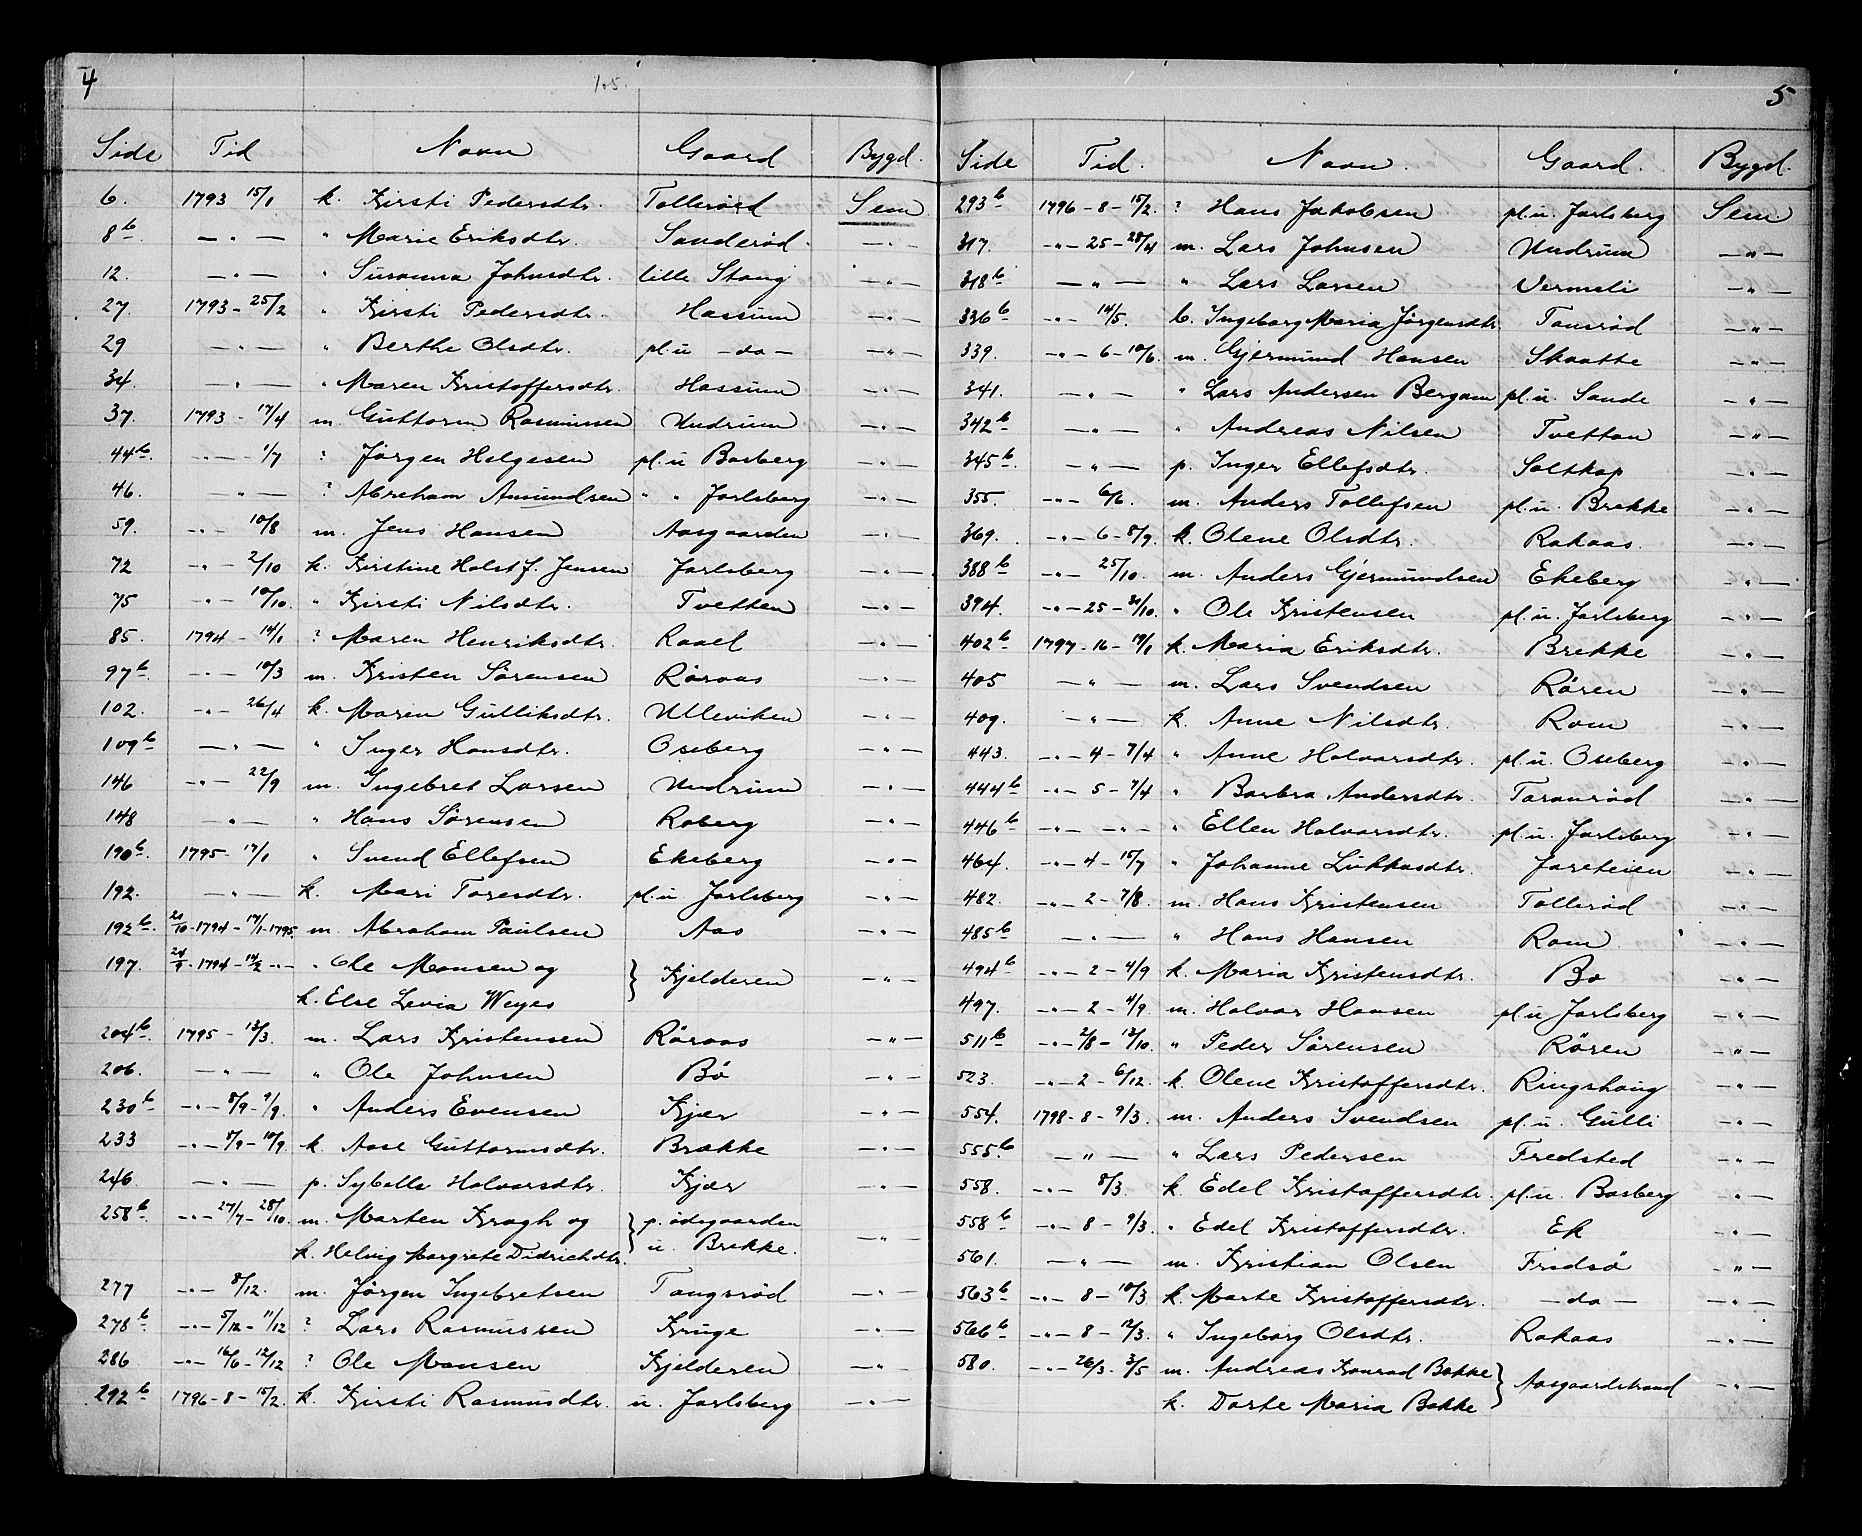 4
105.
Side Tid Navn Gaard Bygd.
6. 1793 15/1 k. Kirsti Pedersdtr. Tollerød Sem
8b. — " — " Marie Eriksdtr. Sanderød — " —
12. — " — " Susanna Johnsdtr. lille Stang — " —
27. 1793 - 25/2 " Kirsti Pedersdtr. Hassum — " —
29 — " — " Berthe Olsdtr. pl. u — do — — " —
34. — " — " Maren Kristoffersdtr. Hassum — " —
37. 1793 - 17/4 m. Guttorm Rasmussen Undrum — " —
44b. — " — 1/7 ? Jørgen Helgesen pl. u Basberg — " —
46. — " — ? Abraham Amundsen " " Jarlsberg — " —
59. — " — 10/8 m. Jens Hansen Aasgaarden — " —
72 — " — 2/10 k. Kirstine Holst f. Jensen Jarlsberg — " —
75 — " — 10/10. " Kirsti Nilsdtr. Tvetten — " —
85. 1794 - 14/1 ? Maren Henriksdtr. Raael — " —
97b. — " — 10/3 m. Kristen Sørensen Røraas — " —
102. — " — 26/4 k. Maren Gulliksdtr. Ulleviken — " —
109b — " — " Inger Hansdtr. Oseberg — " —
146 — " — 22/9 m. Ingebret Larsen Undrum — " —
148 — " — " Hans Sørensen Roberg — " —
190b. 1795 - 17/1 " Svend Ellefsen Ekeberg — " —
192. — " — k. Mari Toresdtr. pl. u Jarlsberg — " —
192b. 20/10 - 1794 - 17/1 - 1795. m. Abraham Paulsen Aas — " —
197. 24/9 - 1794 - 14/2 - " - " Ole Monsen og } Kjelderen — " —
k. Else Levia Weyes
204b. 1795 - 13/3. m. Lars Kristensen Røraas — " —
206. — " — " Ole Johnsen Bø — " —
230b — " — 8/9 - 9/9. " Anders Evensen Kjær — " —
233 — " — 8/9 - 10/9. k. Aase Guttormsdtr. Brække — " —
246. — " — p. Sybelle Halvorsdtr. Kjær — " —
258b. — " — 27/7 - 28/10. m. Morten Kragh og } p. ødegaarden — " —
k. Helvig Margrete Didrichdtr. u. Brekke.
277 — " — 8/12. m. Jørgen Ingebretsen Tangsrød — " —
278b — " — 5/12 - 11/12 ? Lars Rasmussen Kruge — " —
286 — " — 16/6 - 12/12 ? Ole Monsen Kjelderen — " —
292b 1796 - 8 - 15/2. k. Kirsti Rasmusdtr. u. Jarlsberg — " —
5
Side Tid. Navn. Gaard. Bygd.
293b 1796 - 8 - 15/2. ? Hans Jakobsen pl. u. Jarlsberg Sem
317. — " — 25 - 28/4 m. Lars Johnsen Undrum — " —
318b — " — " Lars Larsen Vermeli — " —
336b — " — 14/5. k. Ingeborg Maria Jørgensdtr. Tansrød — " —
339. — " — 6 - 10/6. m. Gjermund Hansen Skaatte — " —
341. — " — " Lars Andersen Bergan pl. u. Sande — " —
342b — " — " Andreas Nilsen Tvettan — " —
345b. — " — p. Inger Ellefsdtr. Saltkop — " —
355. — " — 6/6. m. Anders Tollefsen pl. u. Brekke — " —
369. — " — 6 - 8/9. k. Olene Olsdtr. Rakaas. — " —
388b — " — 25/10. m. Anders Gjermundsen Ekeberg — " —
394. — " — 25 - 30/10. " Ole Kristensen pl. u. Jarlsberg — " —
402b 1797 - 16 - 19/1 k. Maria Eriksdtr. Brekke — " —
405 — " — m. Lars Svendsen Røren — " —
409. — " — k. Anne Nilsdtr. Rom — " —
443. — " — 4 - 7/4 " Anne Halvorsdtr. pl. u. Oseberg — " —
444b — " — 5 - 7/4 " Barbra Andersdtr. Taranrød — " —
446b — " — — " — " Ellen Halvorsdtr. pl. u. Jarlsberg — " —
464. — " — 4 - 15/7 " Johanne Lukkasdtr. Jareteien — " —
482. — " — 2 - 7/8. m. Hans Kristensen Tollerød — " —
485b — " — " Hans Hansen Rom. — " —
494b — " — 2 - 4/9 k. Maria Kristensdtr. Bo — " —
497. — " — 2 - 4/9. m. Halvor Hansen pl. u Jarlsberg — " —
511b — " — 2/8 - 13/10. " Peder Sørensen Røren — " —
523. — " — 2 - 6/12. k. Olene Kristoffersdtr. Ringshaug — " —
554. 1798 - 8 - 9/3. m. Anders Svendsen pl. u. Gulli — " —
555.b — " — " Lars Pedersen Fredsted — " —
558. — " — 8/3. k. Edel Kristoffersdtr. pl. u. Basberg — " —
558b — " — 8 - 9/3. " Edel Kristoffersdtr. Ek — " —
561. — " — m. Kristian Olsen Fredsø — " —
563b — " — 8 - 10/3 k. Marte Kristoffersdtr. — do — — " —
566b — " — 8 - 12/3. " Ingeborg Olsdtr. Rakaas — " —
580. — " — 26/3 . 3/5 m. Andreas Konrad Bakke } Aasgaardstrand — " —
k. Dorte Maria Bakke